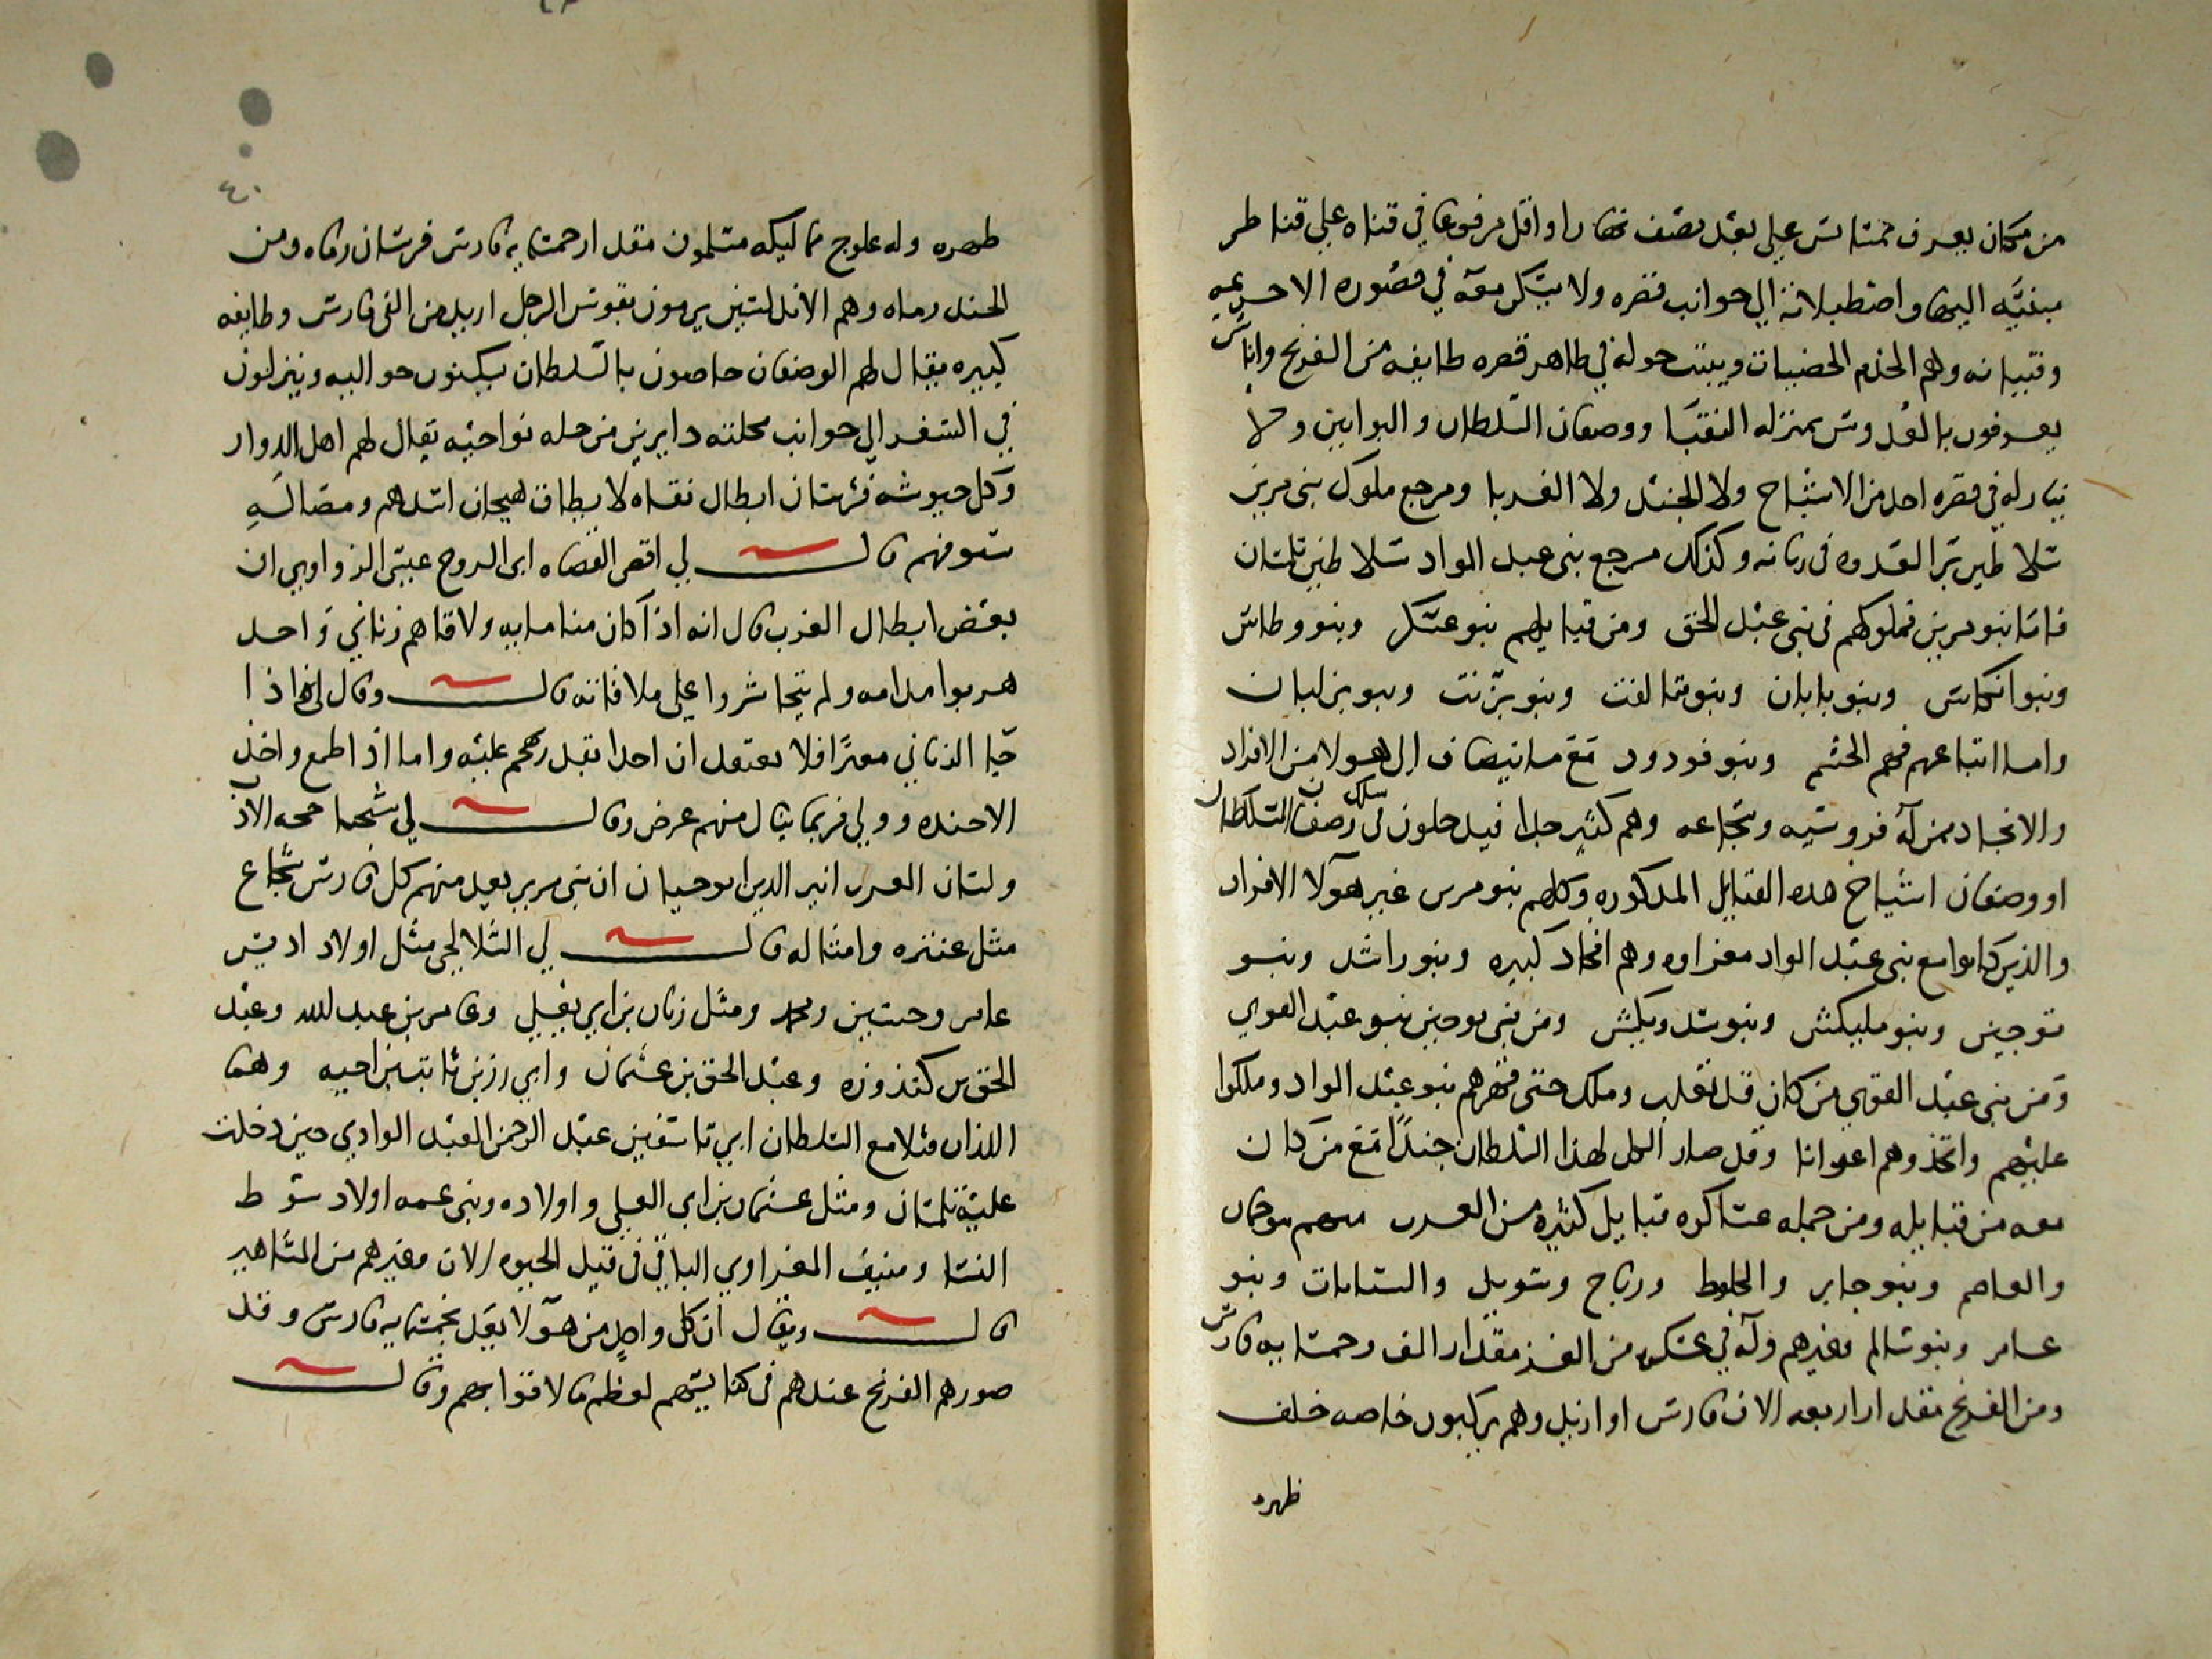 من مكان يعرف بمتاتس على بعد نصف نهار او اقل مرفوعا في قناه على قناطر
مبنيه اليها واصطبلاته الى جوانب قصره ولا يسكن معه في قصوره الا حريمه
وفتيانه وهم الخدم الخصيان ويبيت حوله في ظاهر قصره طايفه من الفرنج واناس
يعرفون بالعُدوس بمنزله النقبا ووصفان السلطان والبوابين ولا
يبات له في قصره احد من الاشياخ ولا الجند ولا الغربا ومرجع ملوك بني مرين
سلاطين بر العدوه في زناته وكذلك مرجع بني عبد الواد سلاطين تلمسان
فاما بنو مرين فملوكهم في بني عبد الحق ومن قبايلهم بنو عسكر وبنو وطاس
وبنو انكاس وبنو يابان وبنو تنالفت وبنو يرنت وبنو يزليان
واما اتباعهم فهم الحشم وبنو فودود مع ما ينضاف الى هولا من الافراد
والانجاد ممن له فروسيه وشجاعه وهم كثير جدا فيدخلون في وصفان السلطان
او وصفان اشياخ هده القبايل المدكوره وكلهم بنو مرين غير هولا الافراد
والذين كانوا مع بني عبد الواد مغراوه وهم افخاد كبيره وبنو راشد وبنو
توجين وبنو مليكش وبنو سدويكش ومن بني توجين بنو عبد القوي
ومن بني عبد القوي من كان قد تغلب وملك حتى قهرهم بنو عبد الواد وملكوا
عليهم واتخذوهم اعوانا وقد صار الكل لهذا السلطان جندًا مع من كان
معه من قبايله ومن جمله عساكره قبايل كثيره من العرب منهم سوحمان
والعاصم وبنو جابر والخلط ورياح وسويد والستايات وبنو
عامر وبنو سالم وغيرهم وله في عسكره من الغز مقدار الف وخمسمايه فارس
ومن الفرنج مقدار اربعه الاف فارس او ازيد وهم يركبون خاصه خلف
ظهره
٤٠
ظهره وله علوج مماليكه مسلمون مقدار خمسمايه فارس فرسان رماه ومن
الجند رماه وهم الاندلسيين يرمون بقوس الرجل ازيد من الفي فارس وطايفه
كبيره يقال لهم الوصفان خاصون بالسلطان يسكنون حواليه وينزلون
في السفر الى جوانب محلته دايرين من جمله نواحيه يقال لهم اهل الدوار
وكل جيوشه فرسان ابطال نقاه لا يطاق هيجان اسدهم ومضا لَه
سيوفهم قال لي اقضى القضاه ابي الروح عيسى الزواوي ان
بعض ابطال الغرب قال انه اذا كان منا مايه ولاقاهم زناتي واحد
هربوا مدامه ولم يتجاسروا على ملاقاته قال وقال لي هذا اذا
جا الزناتي مغيرًا فلا يعتقد ان احدا يقدر يهجم عليه واما اذا طمع واخذ
الاخيذه وولي فربما ينال منهم غرض وقال لي شيخنا حجه الادب
ولسان العرب اثير الدين ابو حيان ان بني مرين يعد منهم كل فارس شجاع
مثل عنتره وامثاله قال لي السلالجي مثل اولاد ادريس
عامر وحسين ومحمد ومثل زيان بن ابي يغيلي وعامر بن عبد لله وعبد
الحق بن كندوزه وعبد الحق بن عثمان وابي رزين ثابت بن اخيه وهما
اللذان قتلا مع السلطان ابي تاشفين عبد الرحمن العبد الوادي حين دخلت
عليه تلمسان ومثل عثمان بن ابي العلى واولاده وبني عمه اولاد سوط
النسا ومنيف المغراوي الباقي في قيد الحيوه الان وغيرهم من المشاهير
قال ويقال ان كل واحدٍ من هولا يعد بخمسمايه فارس وقد
صورهم الفرنج عندهم في كنايسهم لعظم ما لاقوا بهم وقال